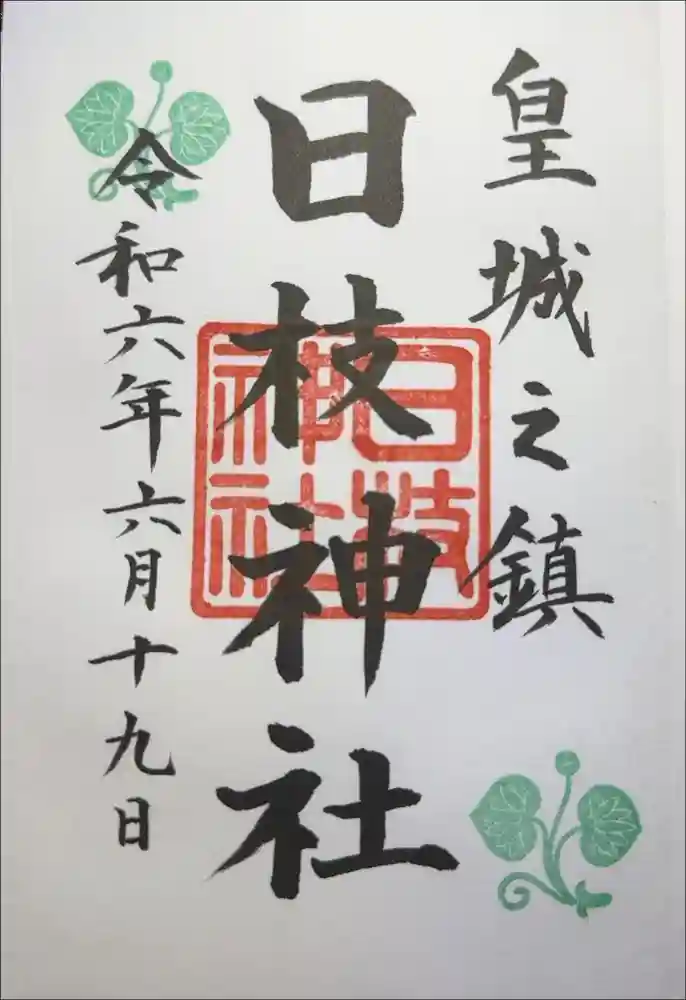 皇城之鎮
日枝神社
日枝神社
令和六年六月十九日